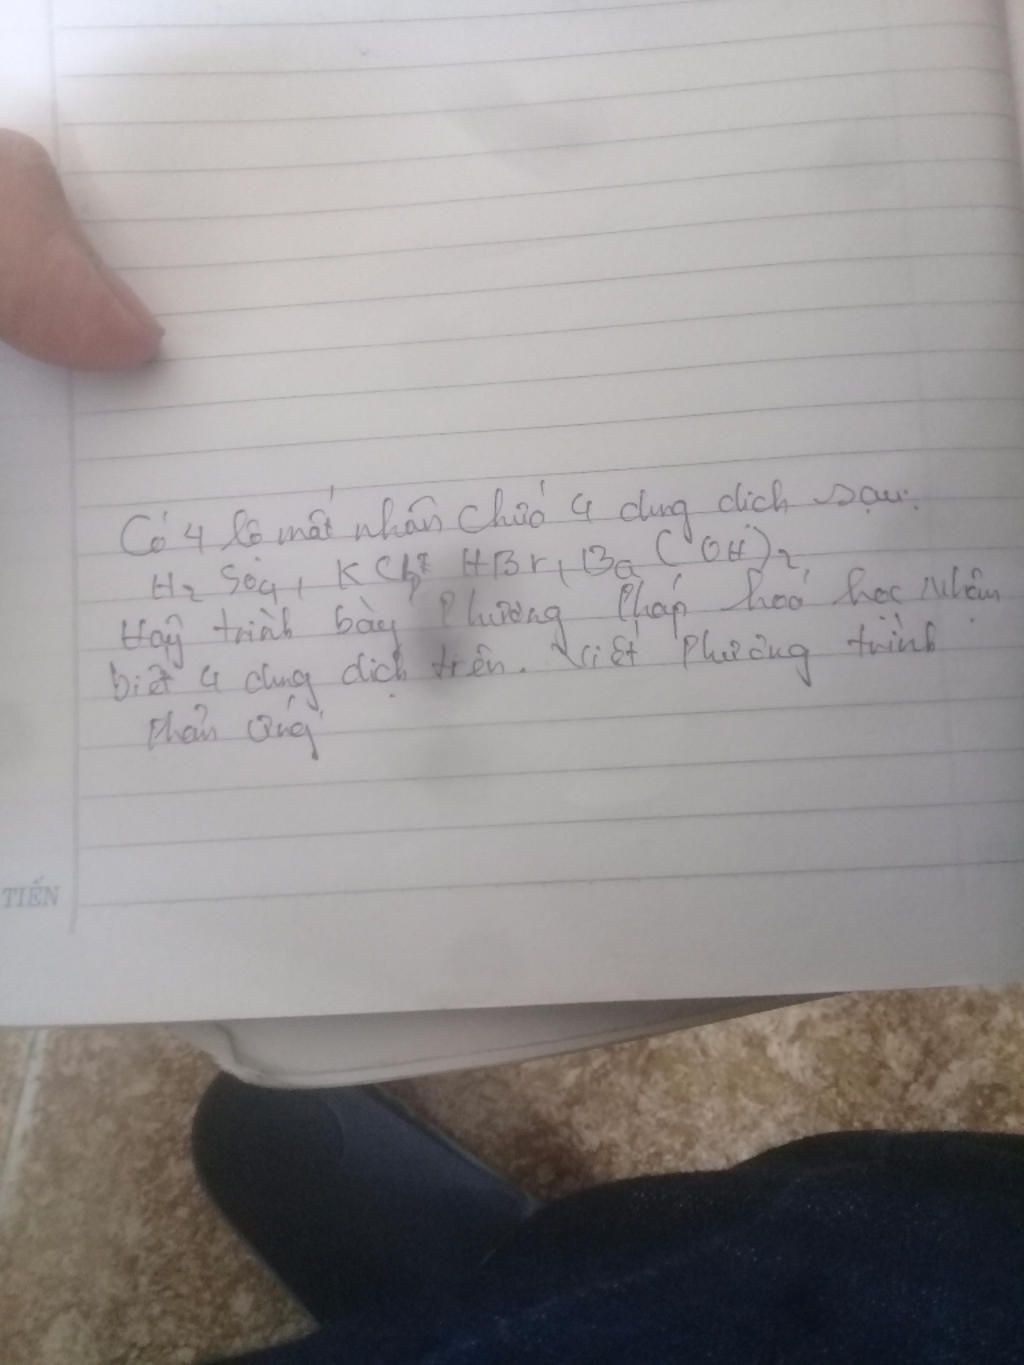 Có 4 lọ mất nhãn chứa 4 dung dịch sau:
H2 SO4, KCl, HBr, Ba(OH)2,
Hãy trình bày phương pháp hoá học nhận
biết 4 dung dịch trên. Viết phương trình
phản ứng
TIẾN